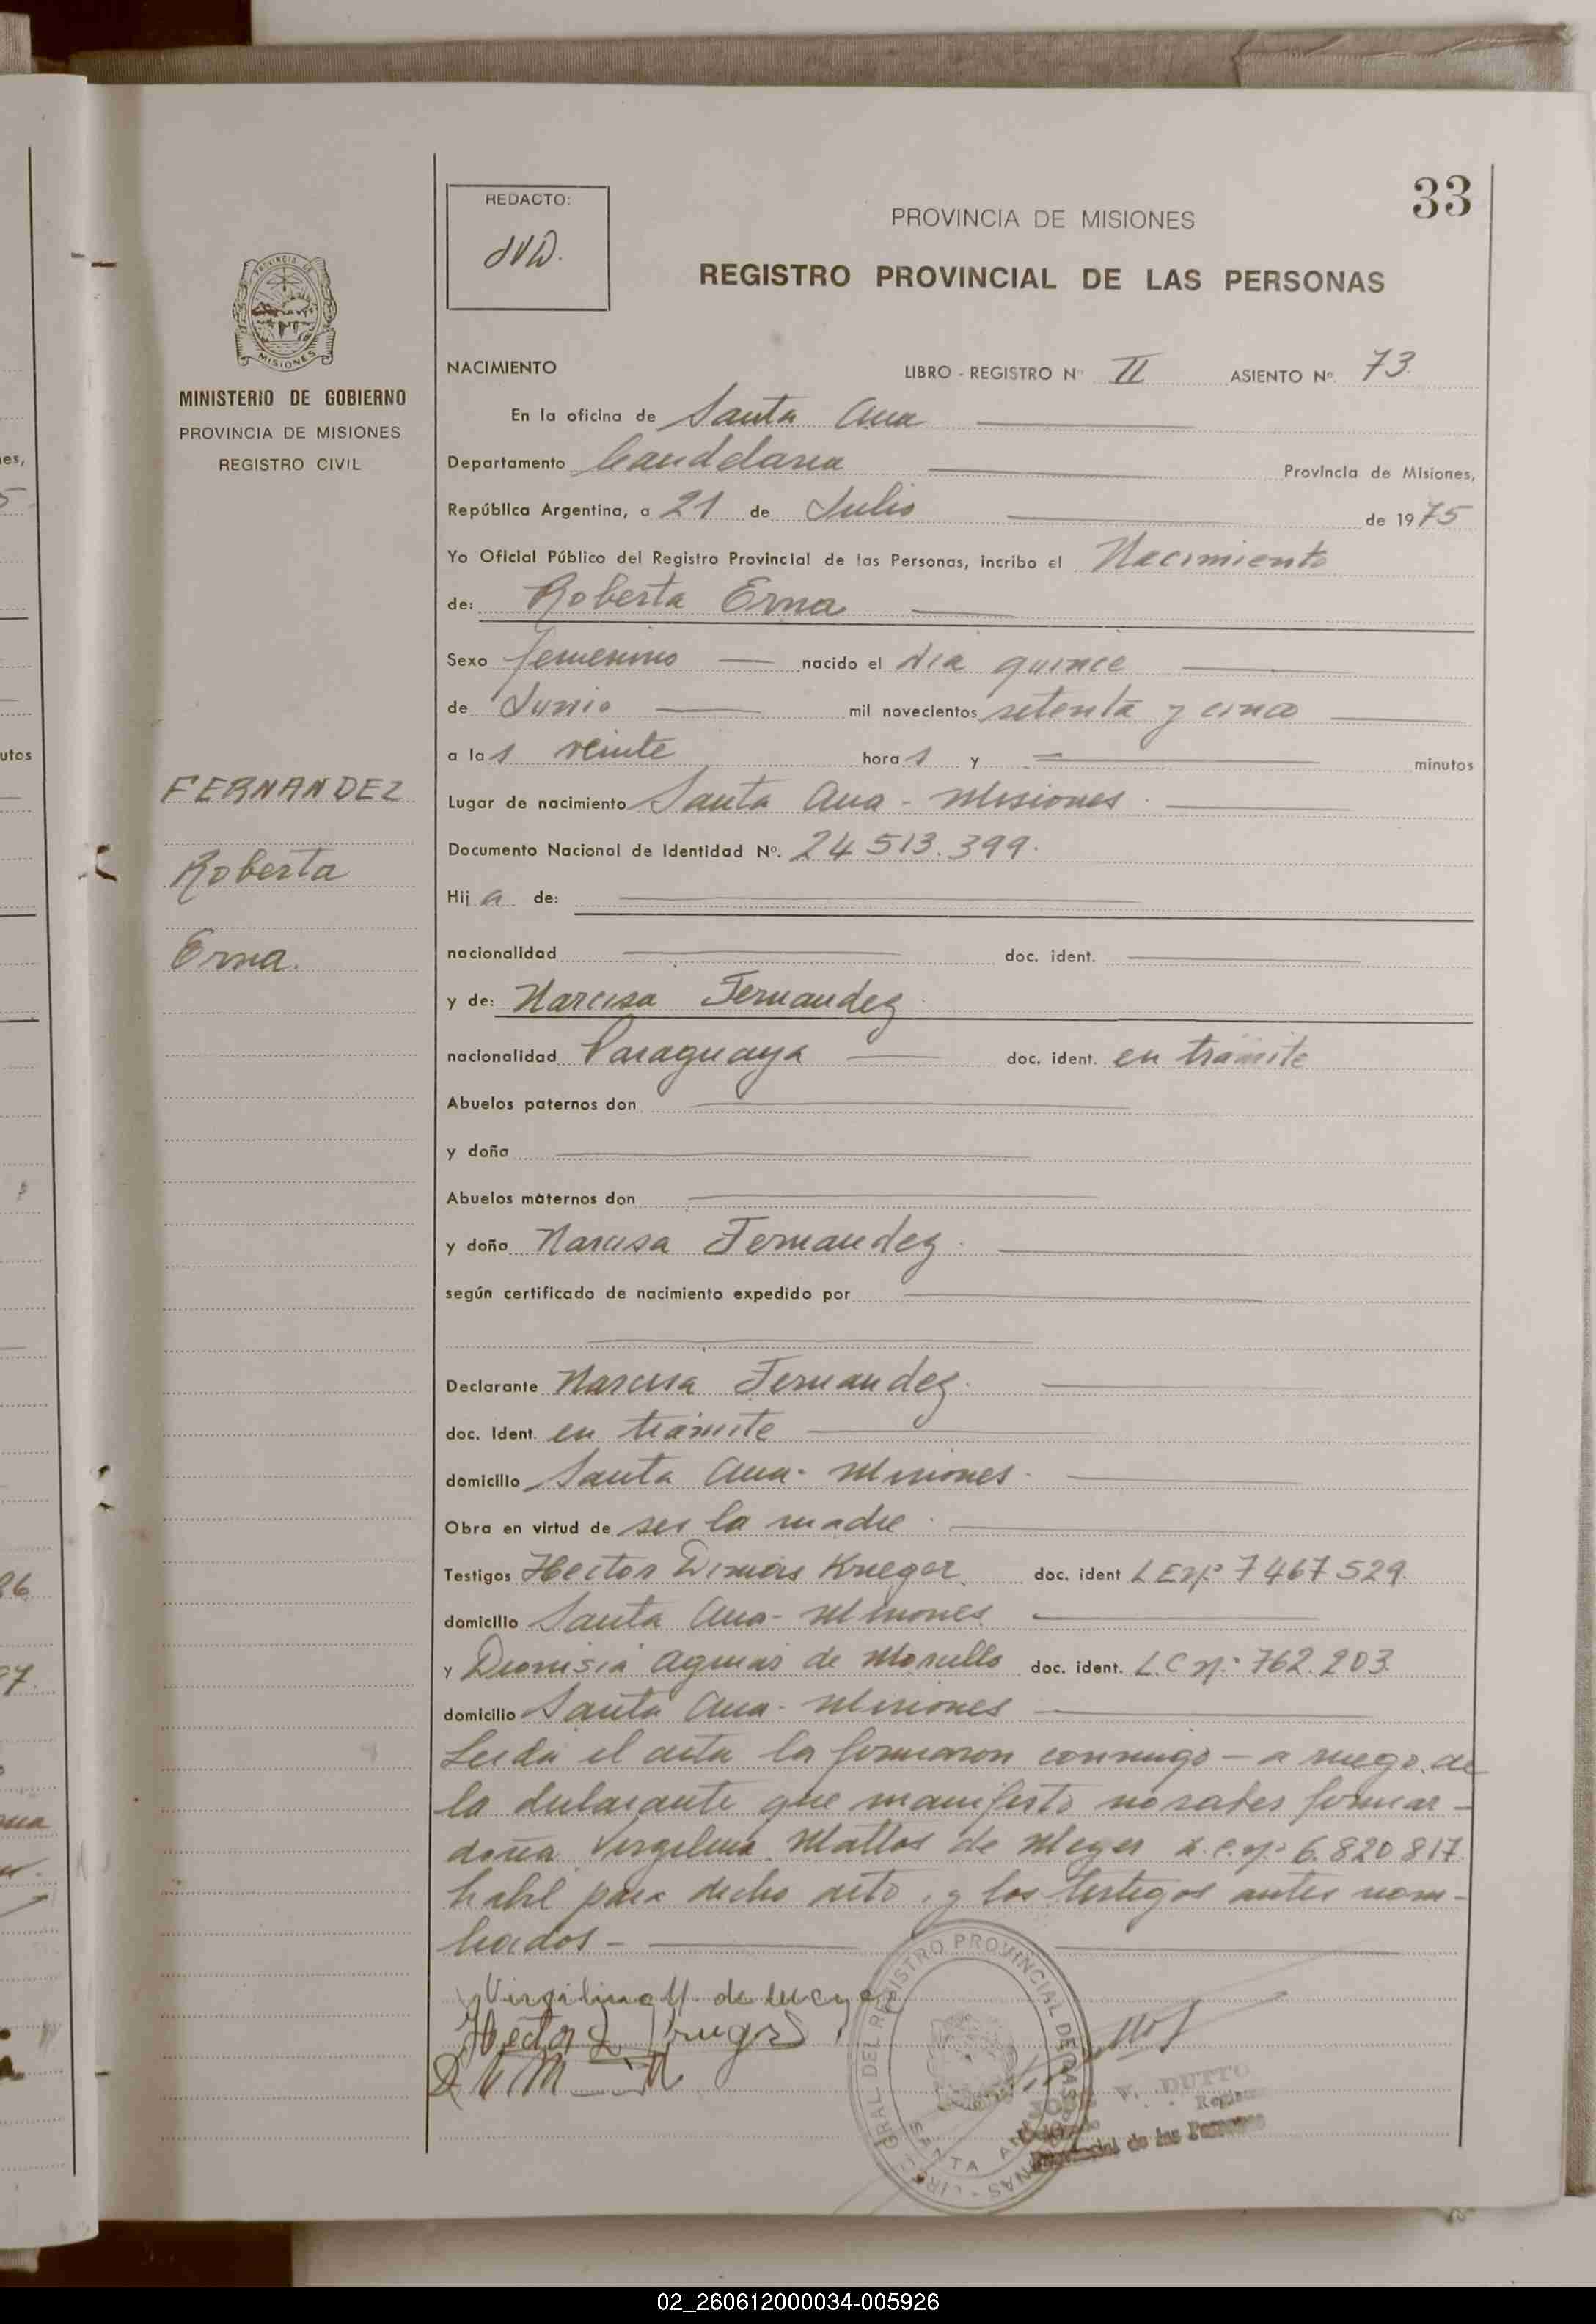 33
REDACTO:
JVD.
PROVINCIA DE MISIONES
REGISTRO PROVINCIAL DE LAS PERSONAS
PROVINCIA DE
MISIONES
MINISTERIO DE GOBIERNO
PROVINCIA DE MISIONES
REGISTRO CIVIL
NACIMIENTO LIBRO - REGISTRO Nº II ASIENTO Nº. 73
En la oficina de Santa Ana
Departamento Candelaria Provincia de Misiones,
República Argentina, a 21 de Julio de 1975
Yo Oficial Público del Registro Provincial de las Personas, incribo el Nacimiento
de: Roberta Erna
Sexo femenino nacido el día quince
de Junio mil novecientos setenta y cinco
a las veinte horas y minutos
FERNANDEZ
Roberta
Erna.
Lugar de nacimiento Santa Ana - Misiones
Documento Nacional de Identidad Nº. 24 513.399.
Hija de:
nacionalidad doc. ident.
y de: Narcisa Fernandez
nacionalidad Paraguaya doc. ident. en trámite
Abuelos paternos don
y doña
Abuelos maternos don
y doña Narcisa Fernandez.
según certificado de nacimiento expedido por
Declarante Narcisa Fernandez.
doc. Ident. en trámite
domicilio Santa Ana - Misiones.
Obra en virtud de ser la madre.
Testigos Hector Dimas Krueger doc. ident L E nº 7 467 529.
domicilio Santa Ana - Misiones
y Dionisia de doc. ident. L.C nº 762.203
domicilio Santa Ana - Misiones
Leida el acta la firmaron conmigo - a ruego de
la declarante que manifestó no saber firmar -
doña Mattos de Meyer L.C.nº 6.820 817
habil para dicho acto, y los testigos antes nom-
brados -
Virgilina M. de Meyer
Hector D Kruger
GRAL DEL REGISTRO PROVINCIAL DE LAS PERSONAS
SANTA ANA
V. DUTTO
Provincial de las Personas
02_260612000034-005926